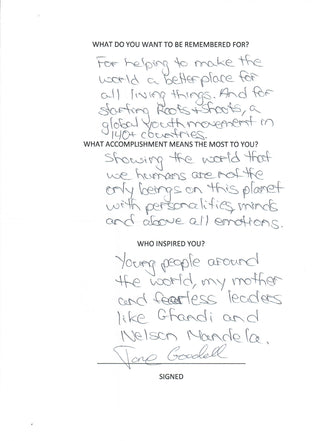 WHAT DO YOU WANT TO BE REMEMBERED FOR?
For helping to make the
world a better place for
all living things. And for
starting Roots+Shoots, a
global youth movement in
140+ countries.
WHAT ACCOMPLISHMENT MEANS THE MOST TO YOU?
Showing the world that
we humans are not the
only beings on this planet
with personalities, minds
and above all emotions.
WHO INSPIRED YOU?
Young people around
the world, my mother
and fearless leaders
like Ghandi and
Nelson Mandela.
Jane Goodall
SIGNED